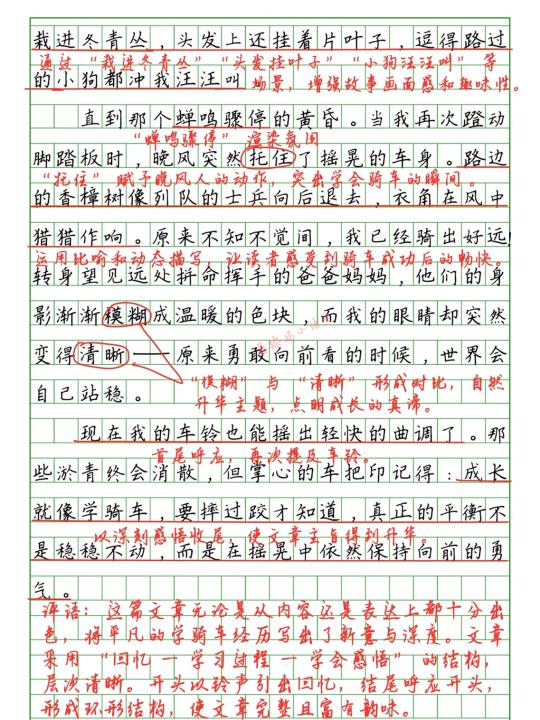 栽进冬青丛，头发上还挂着片叶子，逗得路过
通过“栽进冬青丛”“头发挂叶子”“小狗汪汪叫”等
的小狗都冲我汪汪叫
场景，增强故事画面感和趣味性。
直到那个蝉鸣骤停的黄昏。当我再次蹬动
“蝉鸣骤停”渲染氛围
脚踏板时，晚风突然托住了摇晃的车身。路边
“托住”赋予晚风人的动作，突出学会骑车的瞬间。
的香樟树像列队的士兵向后退去，衣角在风中
猎猎作响。原来不知不觉间，我已经骑出好远！
运用比喻和动态描写，让读者感受到骑车成功后的畅快。
转身望见远处拼命挥手的爸爸妈妈，他们的身
影渐渐模糊成温暖的色块，而我的眼睛却突然
变得清晰——原来勇敢向前看的时候，世界会
自己站稳。
“模糊”与“清晰”形成对比，自然
升华主题，点明成长的真谛。
现在我的车铃也能摇出轻快的曲调了。那
首尾呼应，再次提及车铃。
些淤青终会消散，但掌心的车把印记得：成长
就像学骑车，要摔过跤才知道，真正的平衡不
以深刻感悟收尾，使文章主旨得到升华。
是稳稳不动，而是在摇晃中依然保持向前的勇
气。
评语：这篇文章无论是从内容还是表达上都十分出
色，将平凡的学骑车经历写出了新意与深度。文章
采用“回忆—学习过程—学会感悟”的结构，
层次清晰。开头以铃声引出回忆，结尾呼应开头，
形成环形结构，使文章完整且富有韵味。